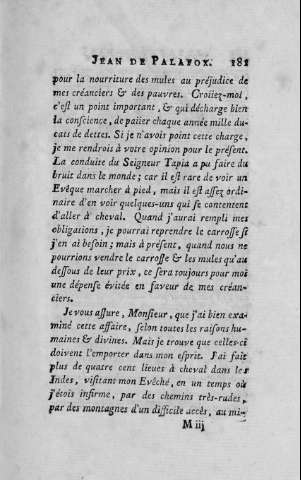 JEAN DE PALAFOX. 181
pour la nourriture des mules au préjudice de
mes créanciers & des pauvres. Croiiez-moi,
c'est un point important, & qui décharge bien
la conscience, de paiier chaque année mille du-
cats de dettes. Si je n'avois point cette charge,
je me rendrois à votre opinion pour le présent.
La conduite du Seigneur Tapia a pu faire du
bruit dans le monde; car il est rare de voir un
Evêque marcher à pied, mais il est assez ordi-
naire d'en voir quelques-uns qui se contentent
d'aller à cheval. Quand j'aurai rempli mes
obligations, je pourrai reprendre le carrosse si
j'en ai besoin; mais à présent, quand nous ne
pourrions vendre le carrosse & les mules qu'au
dessous de leur prix, ce sera toujours pour moi
une dépense évitée en faveur de mes créan-
ciers.
Je vous assure, Monsieur, que j'ai bien exa-
miné cette affaire, selon toutes les raisons hu-
maines & divines. Mais je trouve que celles-ci
doivent l'emporter dans mon esprit. J'ai fait
plus de quatre cent lieuës à cheval dans les
Indes, visitant mon Evêché, en un temps où
j'étois infirme, par des chemins très-rudes,
par des montagnes d'un difficile accès, au mi-
M iij